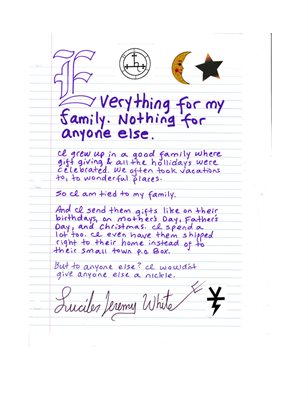 Everything for my
family. Nothing for
anyone else.
I grew up in a good family where
gift giving & all the hollidays were
celebrated. We often took vacations
to, to wonderful places.
So I am tied to my family.
And I send them gifts like on their
birthdays, on mother's Day, Father's
Day, and Christmas. I spend a
lot too. I even have them shipped
right to their home instead of to
their small town p.o. Box.
But to anyone else? I wouldn't
give anyone else a nickle.
Luciles Jeremy White